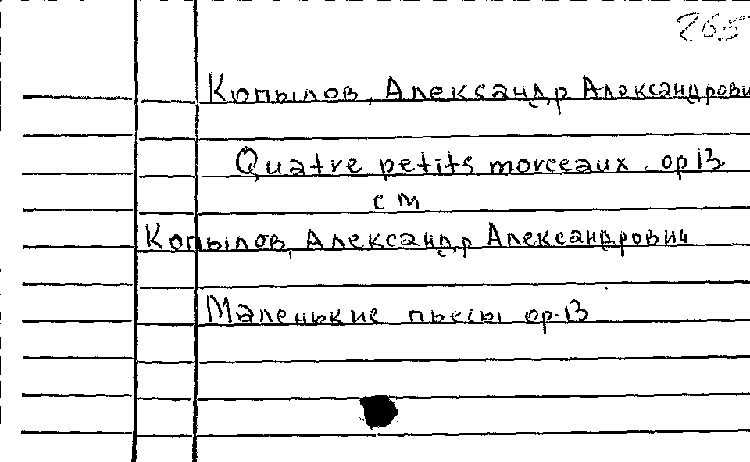 265
Копылов, Александр Александрови
Quatre petits morceaux op 13
см
Копылов, Александр Александрович
Маленькие пьесы op. 13